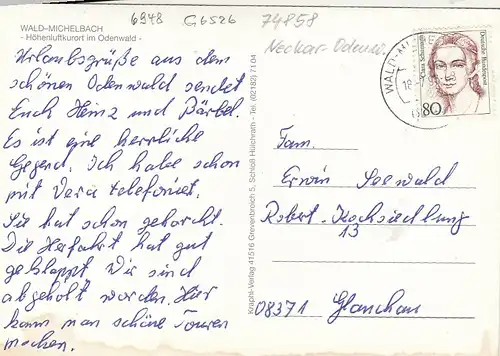 6948 G6526 74858
Neckar-Odenw.
WALD-MICHELBACH
- Höhenluftkurort im Odenwald -
Urlaubsgrüße aus dem
schönen Odenwald sendet
Euch Heinz und Bärbel.
Es ist eine herrliche
Gegend. Ich habe schon
mit Vera telefoniert.
Sie hat schon gehorcht.
Die Herfahrt hat gut
geklappt. Wir sind
abgeholt worden. Hier
kann man schöne Touren
machen.
Knopfs-Verlag 41516 Grevenbroich 5, Schloß Hülchrath - Tel. (02182) 71 04
WALD-MI
18
Deutsche Bundespost
Clara Schumann
80
Fam.
Erwin Seewald
Robert-Koch-siedlung
13
08371 Glauchau